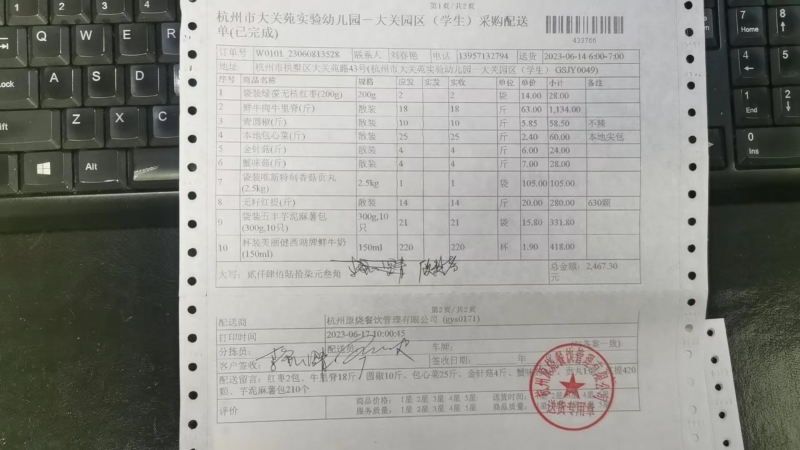 第1页/共2页
杭州市大关苑实验幼儿园－大关园区（学生）采购配送
单(已完成)
433766
订单号 W0101_23060813528 联系人 刘春艳 电话 13957132794 送货 2023-06-14 6:00-7:00
地址 杭州市拱墅区大关苑路43号(杭州市大关苑实验幼儿园－大关园区（学生）GSJY0049)
序号 商品名称 规格 应发 实发 实收 单位 单价 小计 备注
1 袋装绿深无核红枣(200g) 200g 2 2 袋 14.00 28.00
2 鲜牛肉牛里脊(斤) 散装 18 18 斤 63.00 1,134.00
3 青圆椒(斤) 散装 10 10 斤 5.85 58.50 不辣
4 本地包心菜(斤) 散装 25 25 斤 2.40 60.00 本地尖包
5 金针菇(斤) 散装 4 4 斤 6.00 24.00
6 蟹味菇(斤) 散装 4 4 斤 7.00 28.00
7 袋装顺新特制香菇贡丸(2.5kg) 2.5kg 1 1 袋 105.00 105.00
8 无籽红提(斤) 散装 14 14 斤 20.00 280.00 630颗
9 袋装五丰芋泥麻薯包(300g,10只) 300g,10只 21 21 袋 15.80 331.80
10 杯装美丽健西湖牌鲜牛奶(150ml) 150ml 220 220 杯 1.90 418.00
大写：贰仟肆佰陆拾柒元叁角 总金额：2,467.30元
第2页/共2页
配送商 杭州愿烧餐饮管理有限公司 (gys0171)
打印时间 2023-06-17 10:00:45
分拣员： 配送员 车牌：
客户签收： 签收日期： 年 月
配送留言：红枣2包、牛里脊18斤、圆椒10斤、包心菜25斤、金针菇4斤、蟹味 提420
颗、芋泥麻薯包210个
评价 商品价格：1星 2星 3星 4星 5星 送货时间：
服务质量：1星 2星 3星 4星 5星 商品质量：
送货专用章